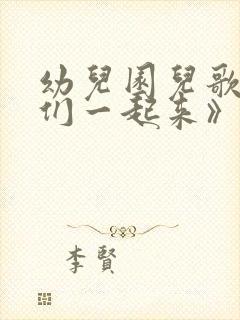 幼兒園兒歌
们一起来》
李賢